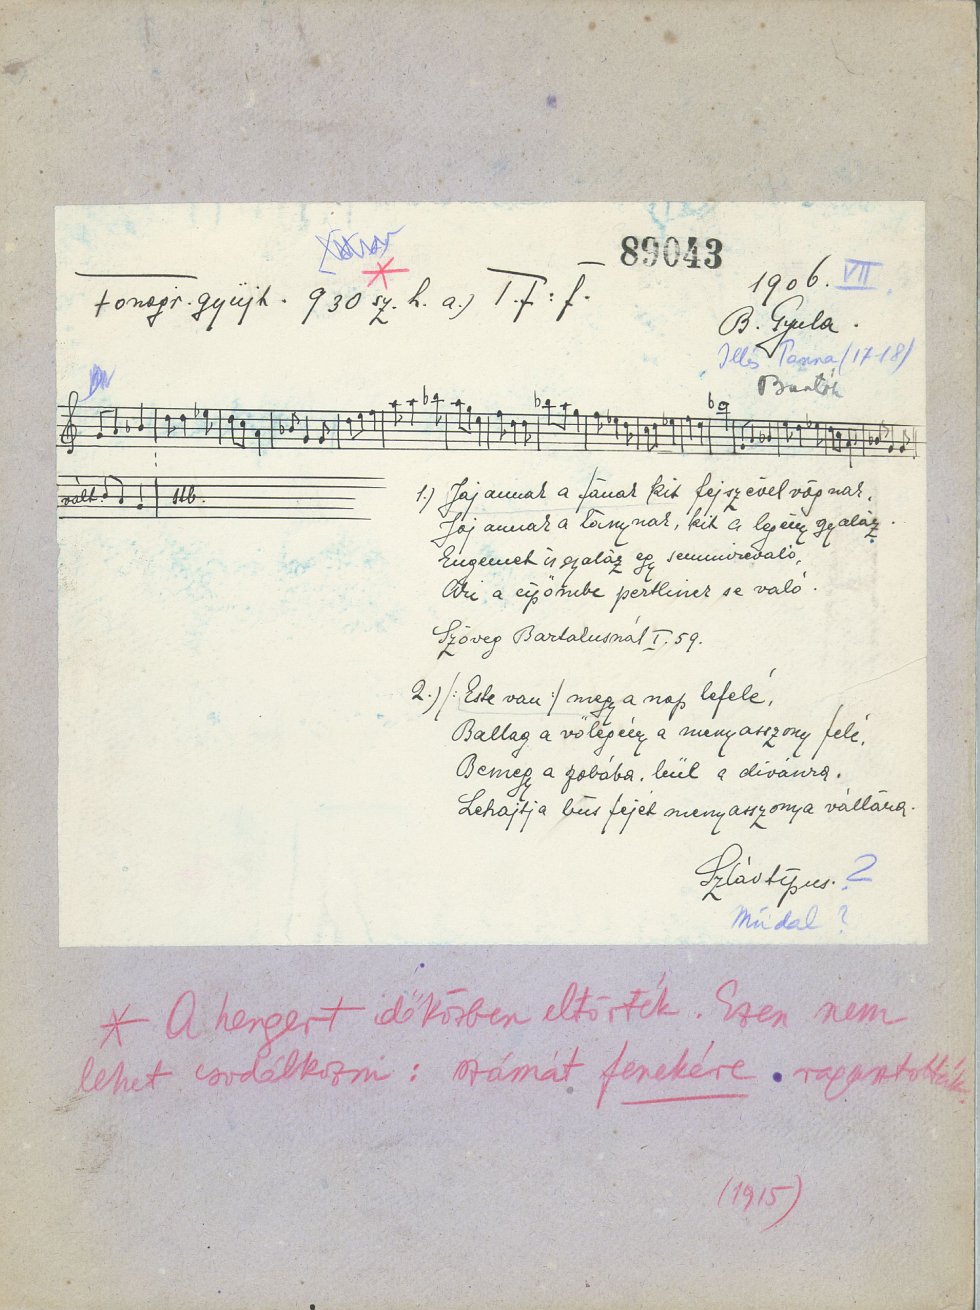 89043
Fonogr. gyüjt. 930 sz. h. a.) T. F: f.
1906. VII
B. Gyula.
Illés Panna (17-18)
Bartók
vált. stb.
1.) Jaj annak a fának kit fejszével vágnak,
Jaj annak a lánynak, kit a legény gyaláz.
Engemet is gyaláz egy semmirevaló,
Aki a cipőmbe pertlinek se való.
Szöveg Bartalusnál I. 59.
2.) /: Este van :/ megy a nap lefelé,
Ballag a vőlegény a menyasszony felé,
Bemegy a szobába, leül a divánra,
Lehajtja bús fejét menyasszonya vállára.
Szláv típus. ?
Műdal ?
* A hengert időközben eltörték. Ezen nem
lehet csodálkozni : számát fenekére ragasztották.
(1915)